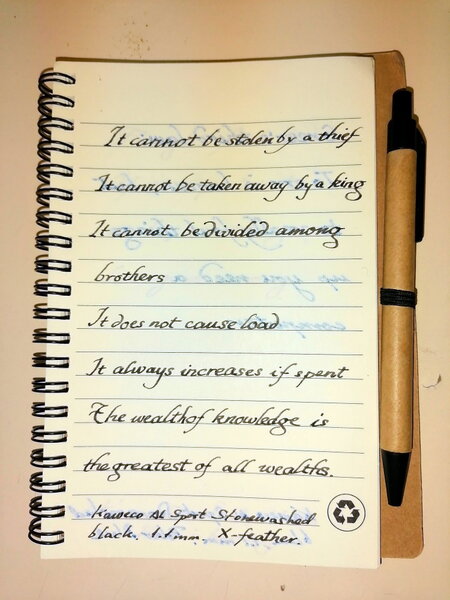 It cannot be stolen by a thief
It cannot be taken away by a king
It cannot be divided among
brothers
It does not cause load
It always increases if spent
The wealth of knowledge is
the greatest of all wealths.
Kaweco AL Sport Stonewashed
black. 1.1 mm. X-feather.